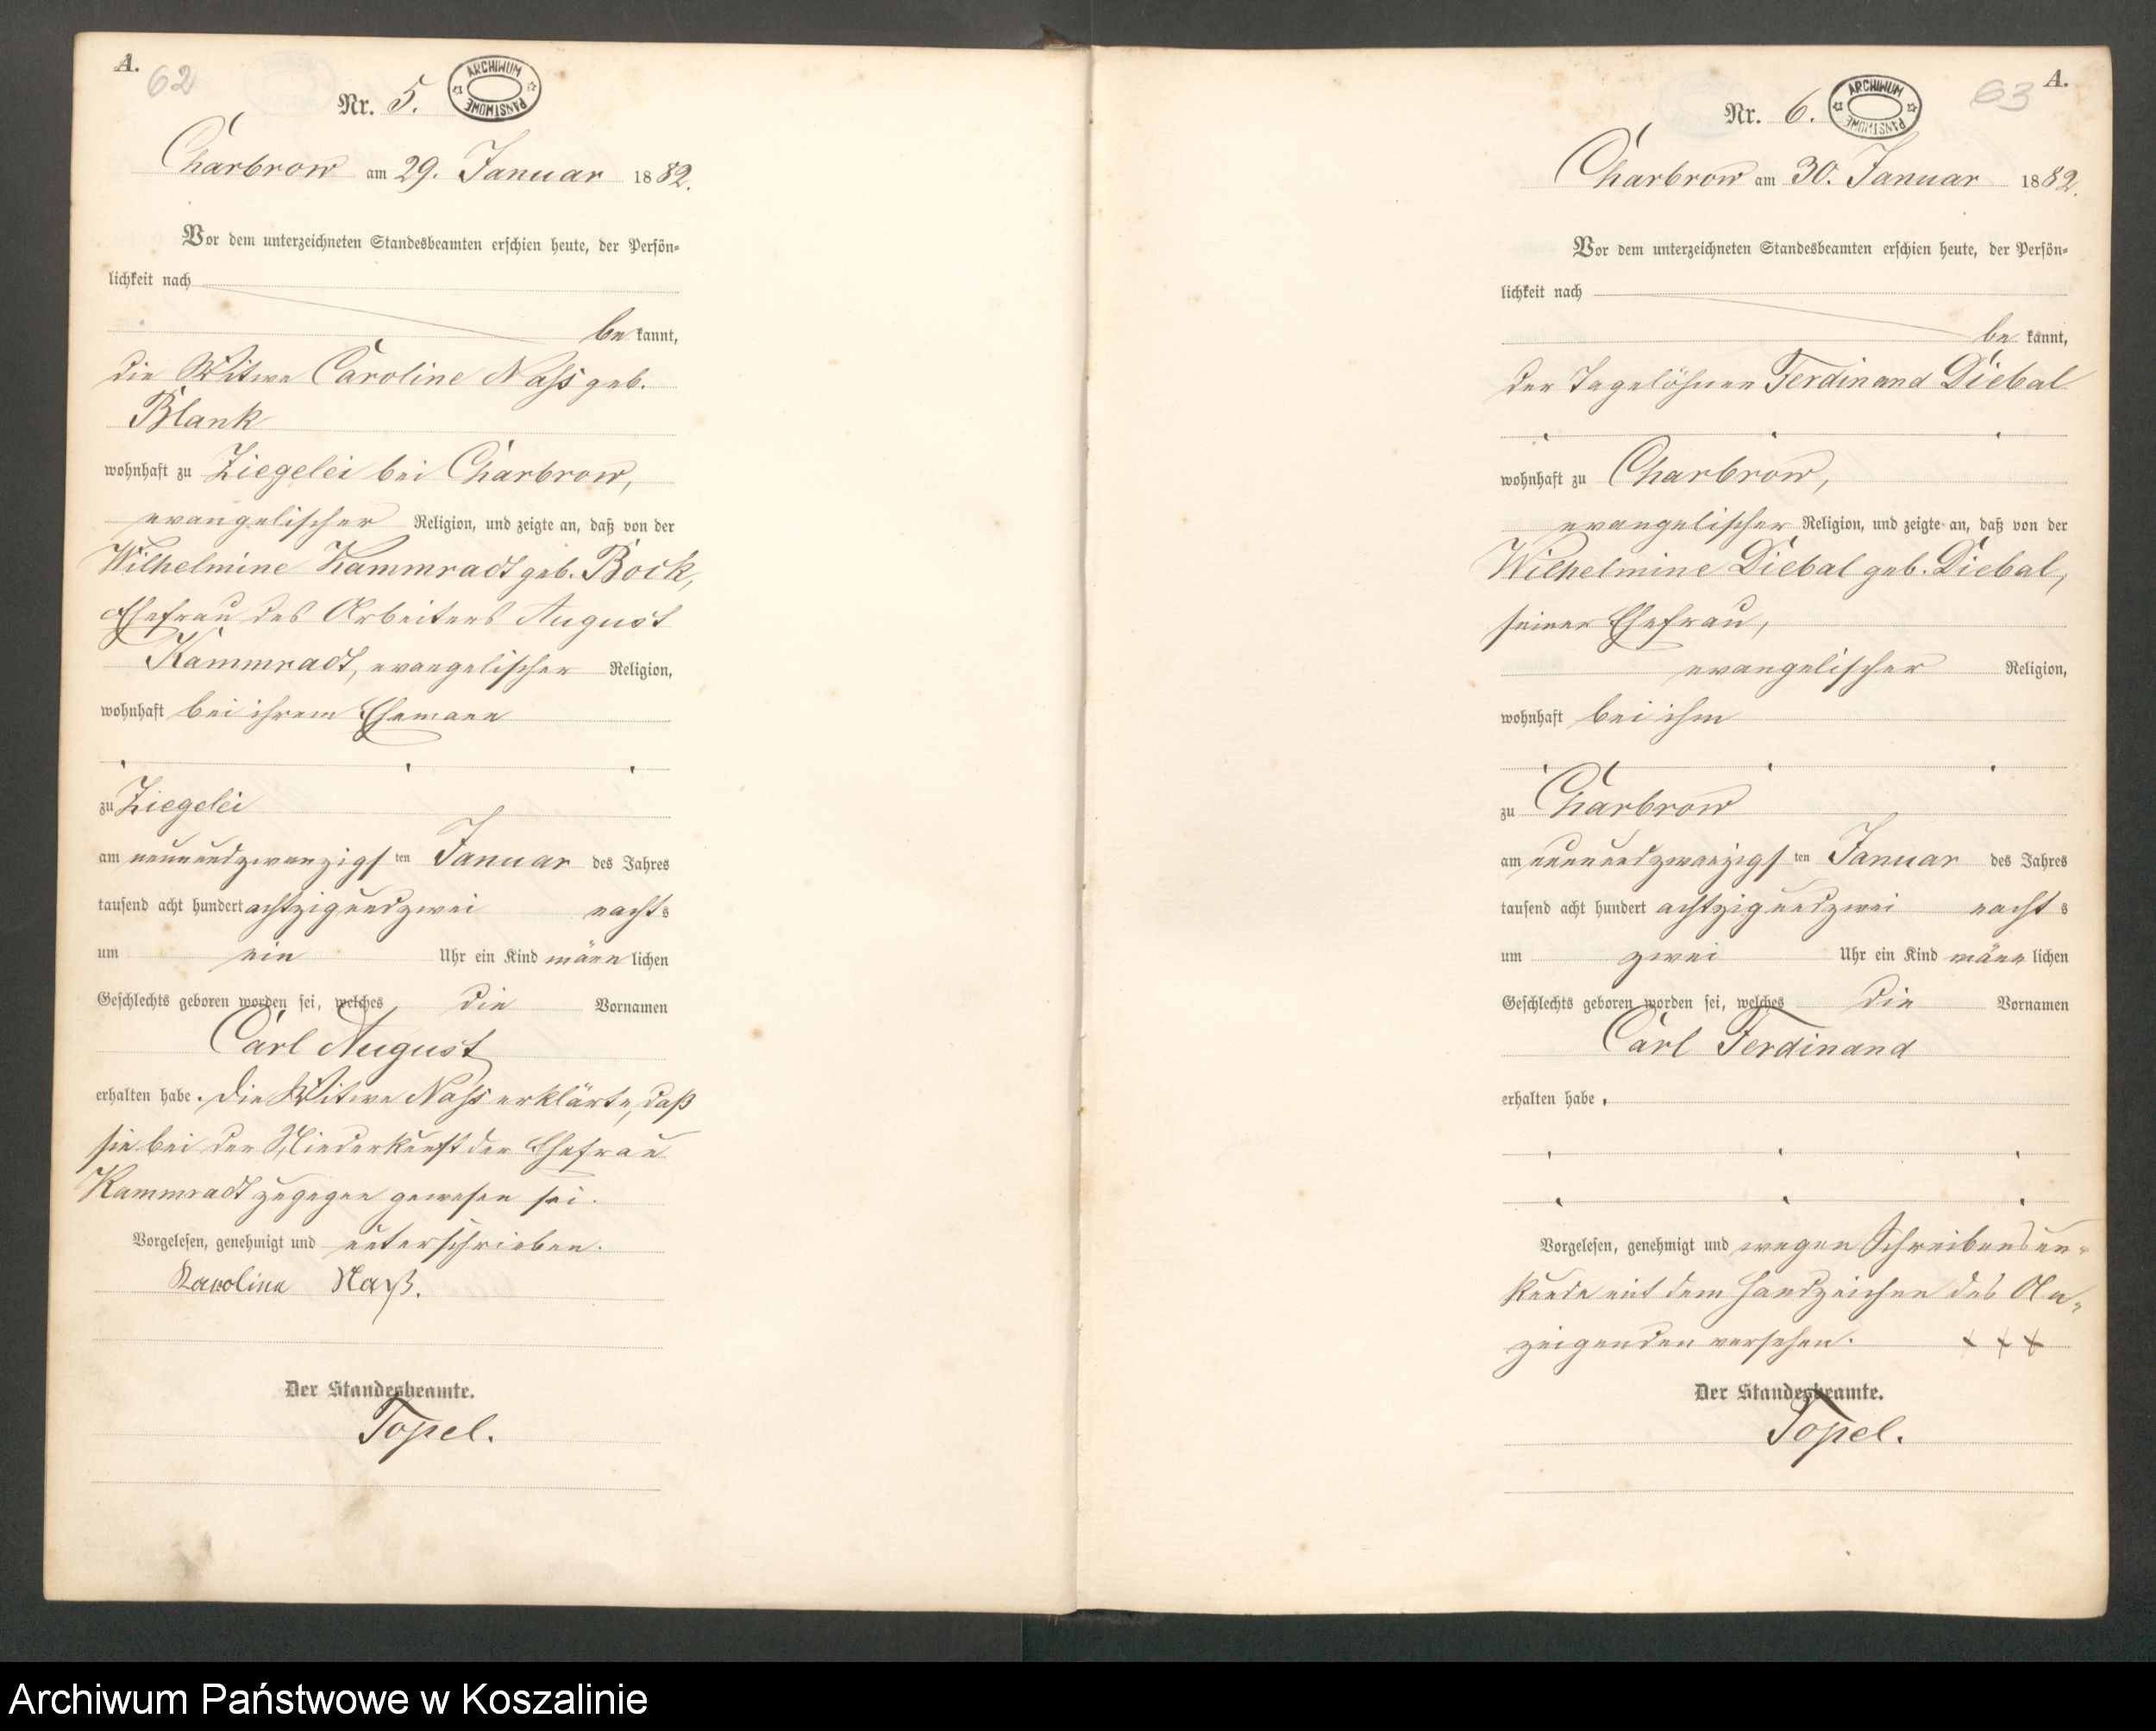 A.
62
Nr. 5.
ARCHIWUM PAŃSTWOWE
Charbrow am 29. Januar 1882.
Vor dem unterzeichneten Standesbeamten erschien heute, der Persön-
lichkeit nach
be kannt,
die Witwe Caroline Nass geb.
Blank
wohnhaft zu Ziegelei bei Charbrow,
evangelischer Religion, und zeigte an, daß von der
Wilhelmine Kammradt geb. Bock,
Ehefrau des Arbeiters August
Kammradt, evangelischer Religion,
wohnhaft bei ihrem Ehemann
zu Ziegelei
am neunundzwanzigsten Januar des Jahres
tausend acht hundert achtzigundzwei nachts
um ein Uhr ein Kind männlichen
Geschlechts geboren worden sei, welches die Vornamen
Carl August
erhalten habe. Die Witwe Nass erklärte, daß
sie bei der Niederkunft der Ehefrau
Kammradt zugegen gewesen sei.
Vorgelesen, genehmigt und unterschrieben.
Karolina Naß.
Der Standesbeamte.
Topel.
A.
63
Nr. 6.
ARCHIWUM PAŃSTWOWE
Charbrow am 30. Januar 1882.
Vor dem unterzeichneten Standesbeamten erschien heute, der Persön-
lichkeit nach
be kannt,
der Tagelöhner Ferdinand Diebal
wohnhaft zu Charbrow,
evangelischer Religion, und zeigte an, daß von der
Wilhelmine Diebal geb. Diebal,
seiner Ehefrau,
evangelischer Religion,
wohnhaft bei ihm
zu Charbrow
am neunundzwanzigsten Januar des Jahres
tausend acht hundert achtzigundzwei nachts
um zwei Uhr ein Kind männlichen
Geschlechts geboren worden sei, welches die Vornamen
Carl Ferdinand
erhalten habe.
Vorgelesen, genehmigt und wegen Schreibensun-
kunde mit dem Handzeichen des An-
zeigenden versehen. + + +
Der Standesbeamte.
Topel.
Archiwum Państwowe w Koszalinie